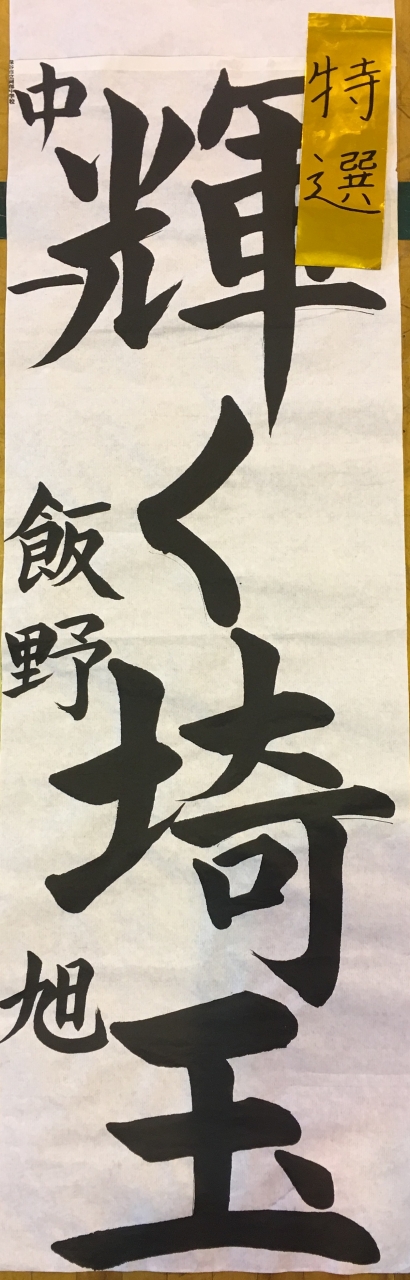 特選
輝く埼玉
中 飯野旭